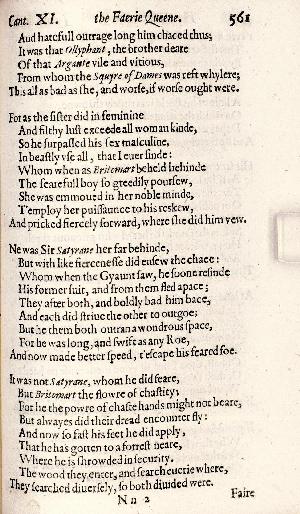 Cant. XI. the Faerie Queene. 561
And hatefull outrage long him chaced thus;
It was that Ollyphant, the brother deare
Of that Argante vile and vitious,
From whom the Squyre of Dames was reft whylere;
This all as bad as she, and worse, if worse ought were.
For as the sister did in feminine
And filthy lust exceede all woman kinde,
So he surpassed his sex masculine,
In beastly vse all, that I euer finde:
Whom when as Britomart beheld behinde
The fearefull boy so greedily poursew,
She was emmoued in her noble minde,
T'employ her puissaunce to his reskew,
And pricked fiercely forward, where she did him vew.
Ne was Sir Satyrane her far behinde,
But with like fiercenesse did ensew the chace:
Whom when the Gyaunt saw, he soone resinde
His former suit, and from them fled apace;
They after both, and boldly bad him bace,
And each did striue the other to outgoe;
But he them both outran a wondrous space,
For he was long, and swift as any Roe,
And now made better speed, t'escape his feared foe.
It was not Satyrane, whom he did feare,
But Britomart the flowre of chastity;
For he the powre of chaste hands might not beare,
But alwayes did their dread encounter fly:
And now so fast his feet he did apply,
That he has gotten to a forrest neare,
Where he is shrowded in security.
The wood they enter, and search euerie where,
They searched diuersely, so both diuided were.
Nn 2 Faire